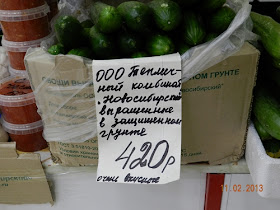 ООО Теплич-
ный комбинат
"Новосибирский"
выращенные
в защищенном
грунте
420р
очень вкусные
НОМ ГРУНТЕ
бирский"
11.02.2013